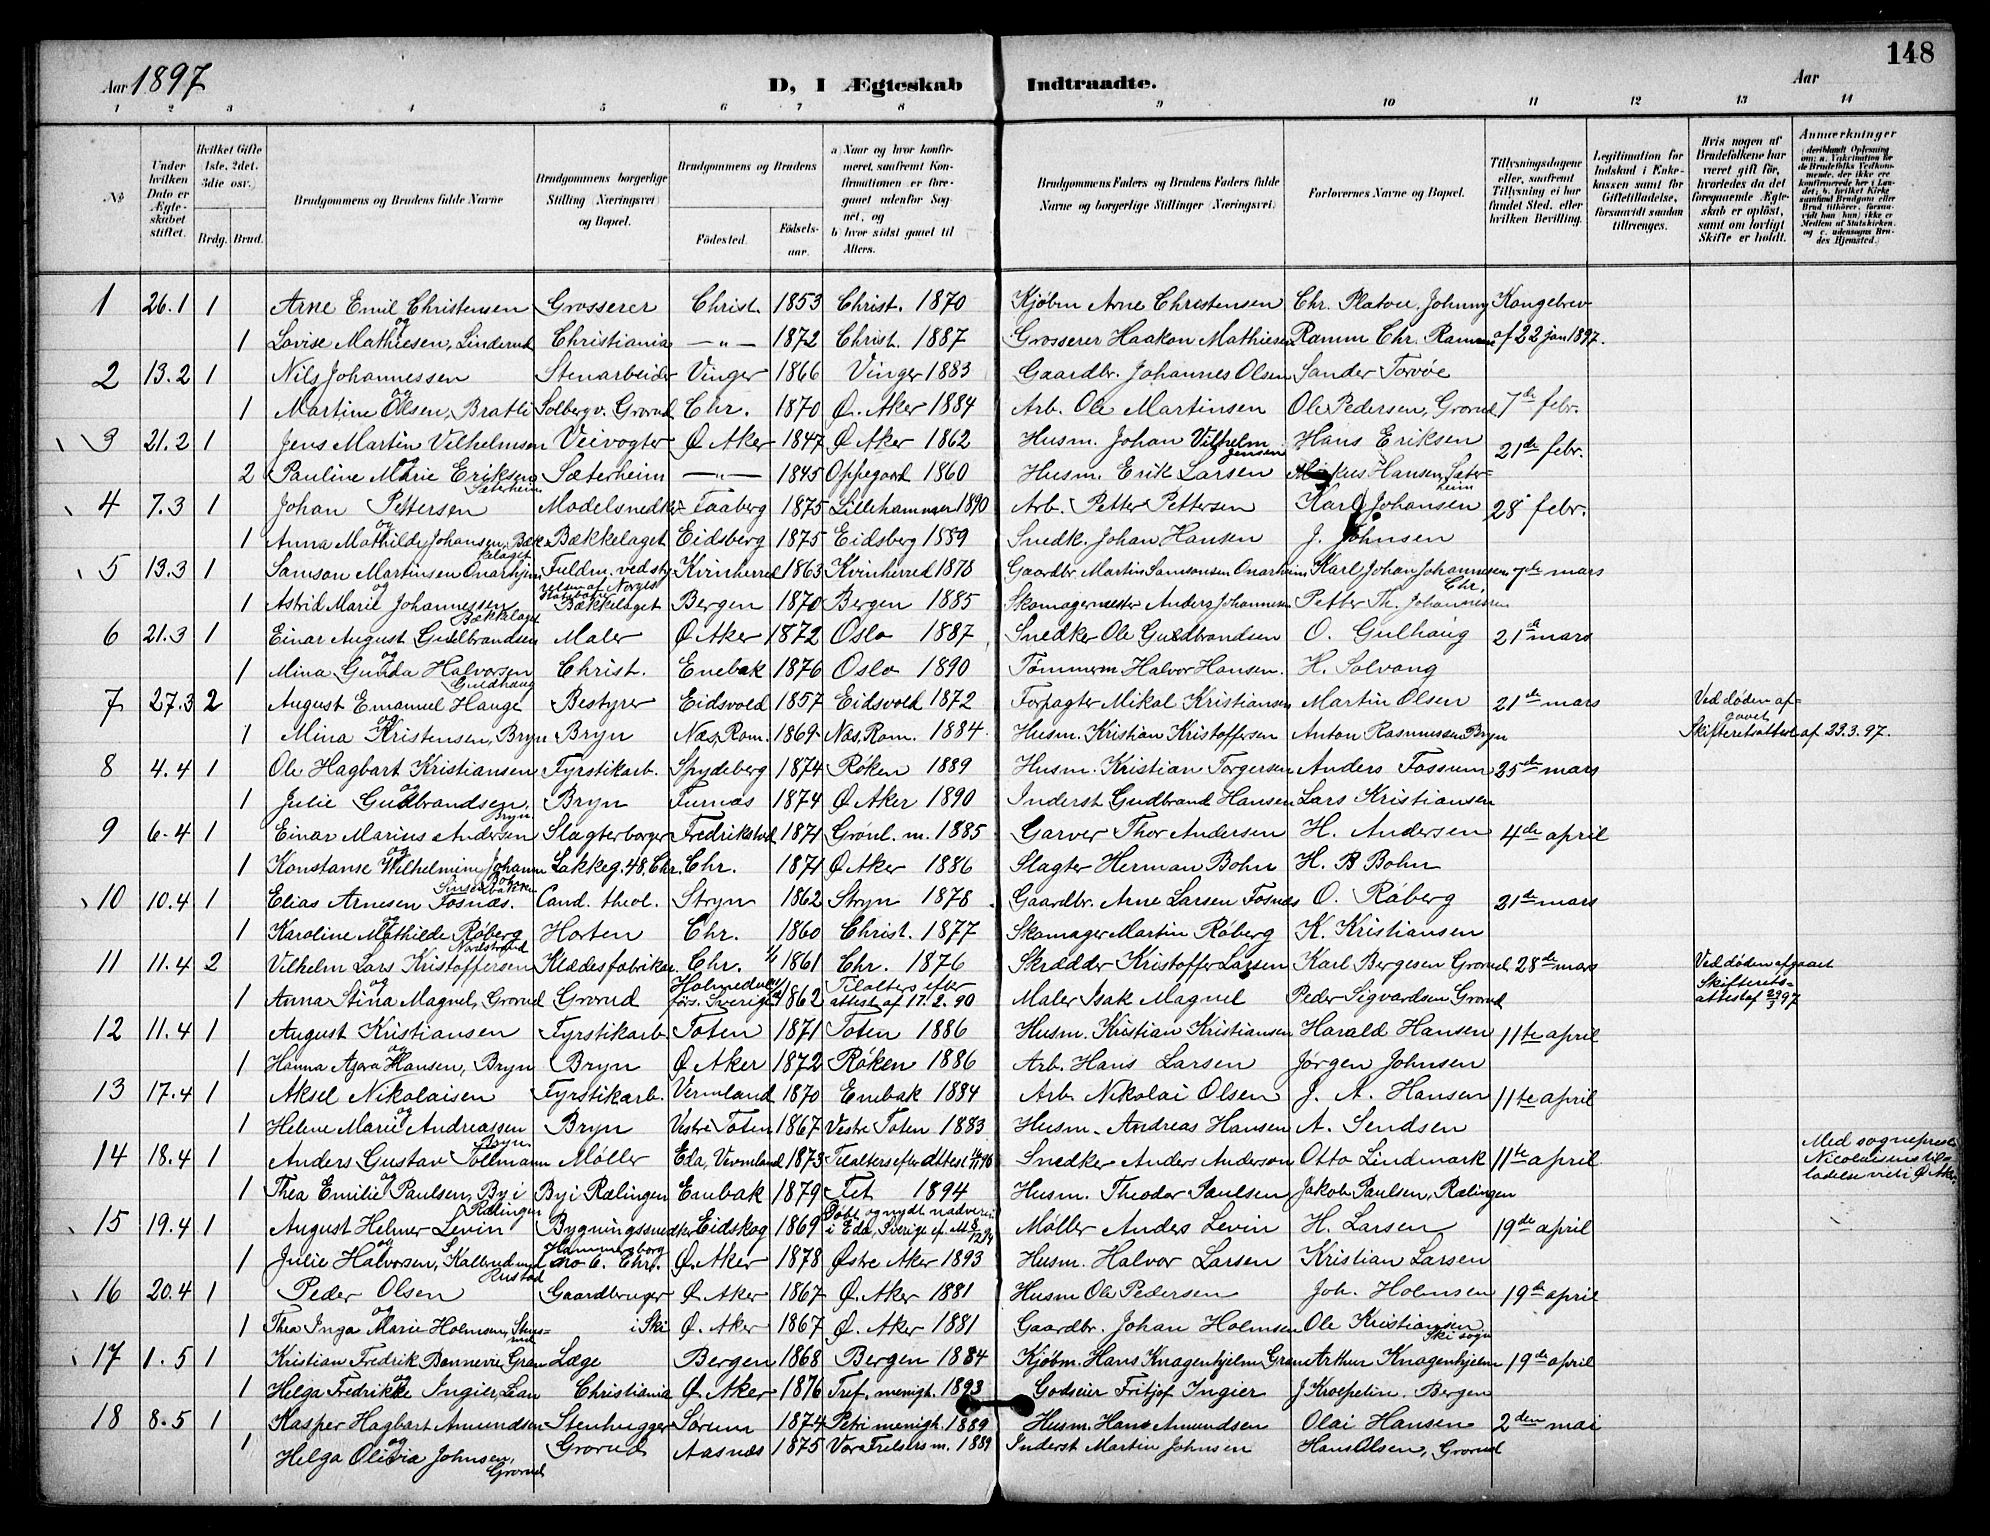 148
Aar 1897
D, I Ægteskab Indtraadte.
Aar
1 2 3 4 5 6 7 8 9 10 11 12 13 14
No
Under hvilken Dato er Ægteskabet stiftet.
Hvilket Gifte 1ste, 2det, 3die osv.)
Brdg. Brud.
Brudgommens og Brudens fulde Navne
Brudgommens borgerlige Stilling (Næringsvei) og Bopæl.
Brudgommens og Brudens
Fødested. Fødselsaar.
a) Naar og hvor konfirmeret, saafremt Konfirmationen er foregaaet udenfor Sognet, og
b) hvor sidst gaaet til Alters.
Brudgommens Faders og Brudens Faders fulde Navne og borgerlige Stillinger (Næringsvei).
Forlovernes Navne og Bopæl.
Tillysningsdagene eller, saafremt Tillysning ei har fundet Sted, efter hvilken Bevilling.
Legitimation for Indskud i Enkekassen samt for Giftetilladelse, forsaavidt saadan tiltrænges.
Hvis nogen af Brudefolkene har været gift før, hvorledes da det foregaaende Ægteskab er opløst, samt om lovligt Skifte er holdt.
Anmærkninger (deriblandt Oplysning om: a. Vakcination for de Brudefolks Vedkommende, der ikke ere konfirmerede her i Landet; b. hvilket Kirkesamfund Brudgom eller Brud tilhører, forsaavidt han (hun) ikke er Medlem af Statskirken, og c. udensogns Brudes Hjemsted.)
1 26.1 1 Arne Emil Christensen Grosserer Christ. 1853 Christ. 1870 Kjøbm Arne Christensen Chr. Platou, Johnny Kongebrev
og
1 Lovise Mathiesen, Linderud Christiania —"— 1872 Christ. 1887 Grosserer Haakon Mathiesen Ramm Chr. Ramm af 22 jan 1897.
2 13.2 1 Nils Johannessen Stenarbeider Vinger 1866 Vinger 1883 Gaardbr. Johannes Olsen Sander Torvöe
og
1 Martine Olsen, Bratli Solberg v. Grorud Chr. 1870 Ø. Aker 1884 Arb. Ole Martinsen Ole Pedersen, Grorud 7de febr.
3 21.2 1 Jens Martin Vilhelmsen Veivogter Ø Aker 1847 Ø Aker 1862 Husm. Johan Vilhelm Jensen Hans Eriksen 21de febr.
og
2 Pauline Marie Eriksen Sæterheim Sæterheim —"— 1845 Oppegaard 1860 Husm. Erik Larsen Markus Hansen, Sæterheim
4 7.3 1 Johan Pettersen Modelsnedker Faaberg 1875 Lillehammer 1890 Arb. Petter Pettersen Karl Johansen 28 febr.
og
1 Anna Mathilde Johansen, Bækkelaget Bækkelaget Eidsberg 1875 Eidsberg 1889 Snedk. Johan Hansen J. Johnsen
5 13.3 1 Samson Martinsen Onarhjem Fuldm. ved styrelsen af Norges Statsbaner Kvinherred 1863 Kvinherred 1878 Gaardbr. Martin Samsonsen Onarheim Karl Johan Johannesen Chr. 7de mars
og
1 Astrid Marie Johannessen Bækkelaget Bækkelaget Bergen 1870 Bergen 1885 Skomagermester Anders Johannesen Petter Th. Johannessen
6 21.3 1 Einar August Gudbrandsen Maler Ø Aker 1872 Oslo 1887 Snedker Ole Gudbrandsen O. Gulhaug 21de mars
og
1 Mina Gunda Halvorsen Guldhaug Christ. Enebak 1876 Oslo 1890 Tømmerm. Halvor Hansen. H. Solvang
7 27.3 2 August Emanuel Hauge Bestyrer Eidsvold 1857 Eidsvold 1872 Forpagter Mikal Kristiansen Martin Olsen 21de mars Ved døden afgaaet
og
1 Mina Kristensen, Bryn Bryn Næs, Rom. 1869 Næs, Rom. 1884 Husm. Kristian Kristoffersen Anton Rasmussen Bryn Skifteretsattest af 23.3.97.
8 4.4 1 Ole Hagbart Kristiansen Fyrstikarb. Spydeberg 1874 Røken 1889 Husm. Kristian Torgersen Anders Fossum 25de mars
og
1 Julie Gudbrandsen, Bryn Bryn Furnæs 1874 Ø Aker 1890 Inderst Gudbrand Hansen Lars Kristiansen
9 6.4 1 Einar Marius Andersen Slagterborger Fredrikstad 1871 Grønl. m. 1885 Garver Thor Andersen H. Andersen 4de april
og
1 Konstanse Wilhelmine Johanne Bohn Sinsenbakken Lakkeg. 48, Chr. Chr. 1871 Ø Aker 1886 Slagter Herman Bohn H. B Bohn
10 10.4 1 Elias Arnesen Fosnæs. Cand. theol. Stryn 1862 Stryn 1878 Gaardbr. Arne Larsen Fosnæs O. Røberg 21de mars
og
1 Karoline Mathilde Røberg Nordstrand Horten Chr. 1860 Christ. 1877 Skomager Martin Røberg K. Kristiansen
11 11.4 2 Vilhelm Lars Kristoffersen Klædesfabrikar. Chr. 1861 Chr. 1876 Skrædder Kristoffer Larsen Karl Bergesen Grorud 28de mars Ved døden afgaaet
og
1 Anna Stina Magnel, Grorud Grorud Holmedals förs. Sverige 1862 Tilalters efter attest af 17.2.90 Maler Isak Magnel Peder Sigvardsen Grorud Skifteretsattest af 29/3 97
12 11.4 1 August Kristiansen Fyrstikarb. Toten 1871 Toten 1886 Husm. Kristian Kristiansen Harald Hansen 11te april
og
1 Hanna Agara Hansen, Bryn Bryn Ø Aker 1872 Røken 1886 Arb. Hans Larsen Jørgen Johnsen
13 17.4 1 Aksel Nikolaisen Fyrstikarb. Vermland 1870 Enebak 1884 Arb. Nikolai Olsen J. A. Hansen 11te april
og
1 Helene Marie Andreassen Bryn Bryn Vestre Toten 1867 Vestre Toten 1883 Husm. Andreas Hansen A. Sendsen
14 18.4 1 Anders Gustav Tollmann Møller Eda, Vermland 1873 Tilalters efter attest Snedker Anders Anderson Otto Lindmark 11te april Med sogneprest Nicolaisens tilladelse viet i Ø Aker
og
1 Thea Emilie Paulsen, By i Rælingen By i Rælingen Enebak 1879 Fet 1894 Husm. Theodor Paulsen Jakob Paulsen, Rælingen
15 19.4 1 August Helmer Levin Bygningssnedker Eidskog 1869 Døbt og nydt nadveren i Eda, Sverige Møller Anders Levin H. Larsen 19de april
og
1 Julie Halvorsen, S. Kallerud Rustad Hammersborg no 6. Chr. Ø. Aker 1878 Østre Aker 1893 Husm. Halvor Larsen Kristian Larsen
16 20.4 1 Peder Olsen Gaardbruger Ø. Aker 1867 Ø. Aker 1881 Husm Ole Pedersen Joh. Holmsen 19de april
og
1 Thea Inga Marie Holmsen, Stensrud i Ski Ø. Aker 1867 Ø. Aker 1881 Gaardbr. Johan Holmsen Ole Kristiansen Ski sogn
17 1.5 1 Kristian Fredrik Bonnevie Gran Læge Bergen 1868 Bergen 1884 Kjøbm. Hans Knagenhjelm Gran Arthur Knagenhjelm 19de april
og
1 Helga Fredrikke Ingier, Lian Christiania Ø. Aker 1876 Tref. menigh. 1893 Godseier Fritjof Ingier J Kroepelin. Bergen
18 8.5 1 Kasper Hagbart Amundsen Stenhugger Sørum 1874 Petri menigh. 1889 Husm. Hans Amundsen Olai Hansen 2den mai
og
1 Helga Olivia Johnsen, Grorud Grorud Aasnæs 1875 Vor Frelsers m. 1889 Inderst Martin Johnsen Hans Olsen, Grorud